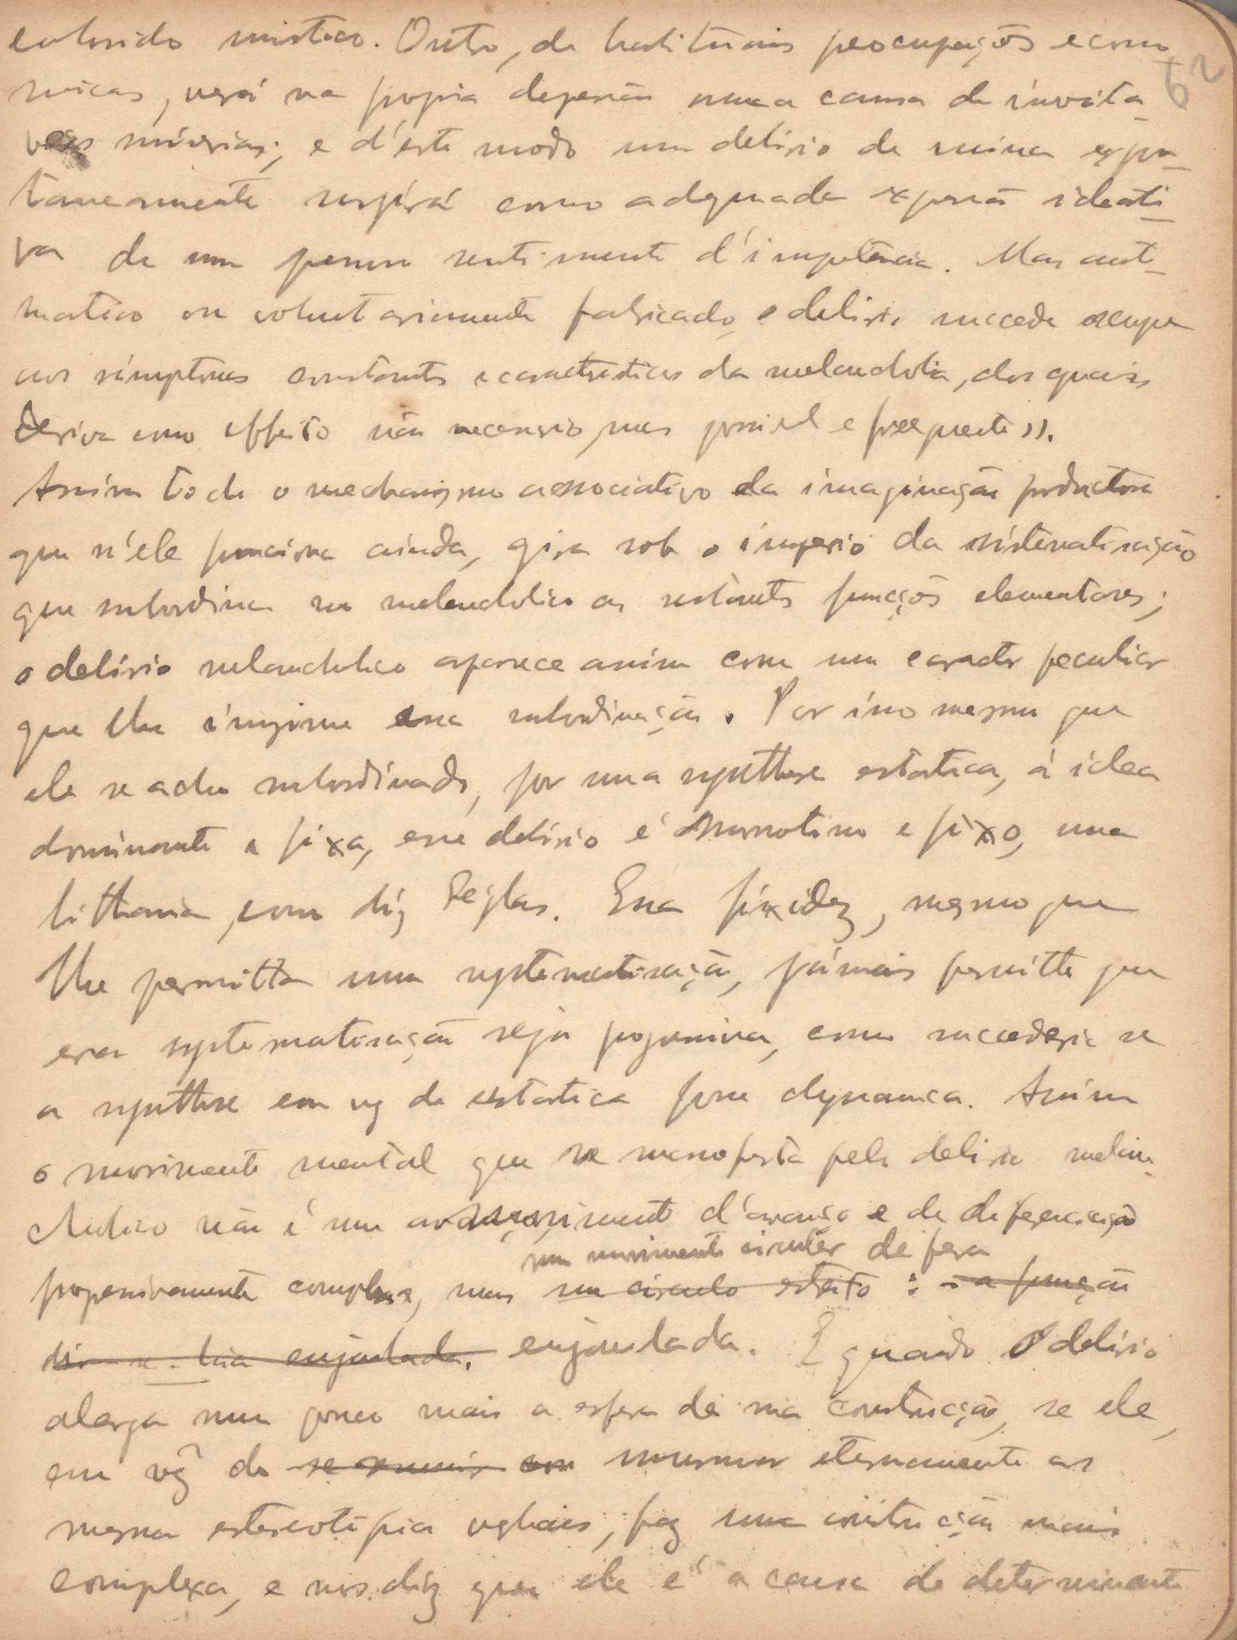 colorido mistico. Outro, de habituais preocupações econo
62
micas, verá na propria depressão uma causa de inevita-
veis miserias; e d'este modo um delirio de ruina espon-
taneamente surgirá como adequada expressão ideati-
va de um penoso sentimento d'impotencia. Mas auto-
matico ou voluntariamente fabricado, o delirio succede sempre
aos simptomas constantes e caracteristicos da melancholia, dos quais
deriva como effeito não necessario, mas possivel e frequente».
Assim todo o mechanismo associativo da imaginação productora
que n'ele funciona ainda, gira sob o imperio da sistematisação
que subordina no melancholico as restantes funções elementares;
o delirio melancholico aparece assim com um caracter peculiar
que lhe imprime essa subordinação. Por isso mesmo que
ele se acha subordinado, por uma synthese estatica, á idea
dominante e fixa, esse delirio é monotono e fixo, uma
litthania, como diz Séglas. Essa fixidez, mesmo que
lhe permitta uma systematisação, jámais permitte que
essa systematisação seja progressiva, como succederia se
a synthese em vez de estatica fosse dynamica. Assim
o movimento mental que se manifesta pelo delirio melan-
cholico não é um movimento d'avanço e de diferenciação
um movimento circular de fera
progressivamente complexa, mas um circulo estreito : a função
enjaulada. enjaulada. E quando o delirio
alarga um pouco mais a esfera de sua construcção, se ele,
em vez de se resumir em murmurar eternamente as
mesma estereotipia verbais, faz uma construcção mais
complexa, e nos diz que ele é a causa de determinante